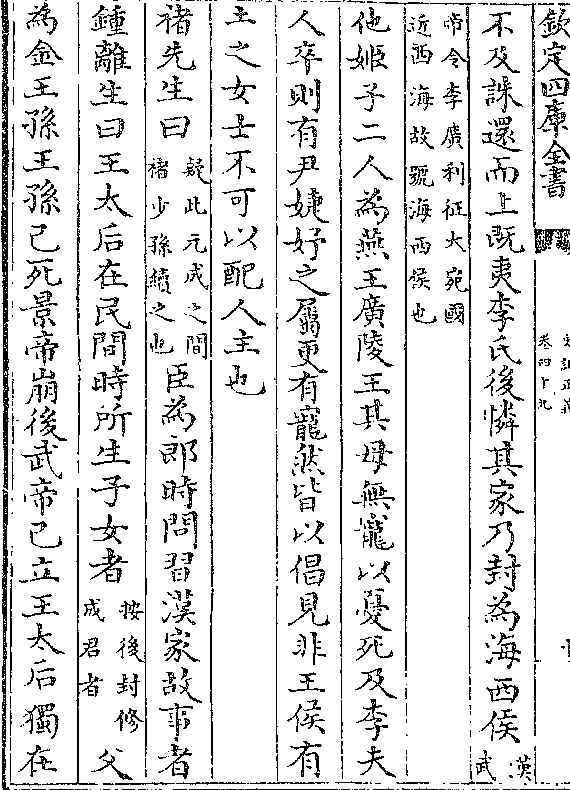 欽定四庫全書
卷四十九
不及誅還而上既夷李氏後憐其家乃封為海西侯漢武
帝令李廣利征大宛國
近西海故號海西侯也
他姬子二人為燕王廣陵王其母無寵以憂死及李夫
人卒則有尹婕妤之屬更有寵然皆以倡見非王侯有
土之女士不可以配人主也
褚先生曰疑此元成之間褚少孫續之也臣為郎時問習漢家故事者
鍾離生曰王太后在民間時所生子女者按後封修成君者父
為金王孫王孫已死景帝崩後武帝已立王太后獨在